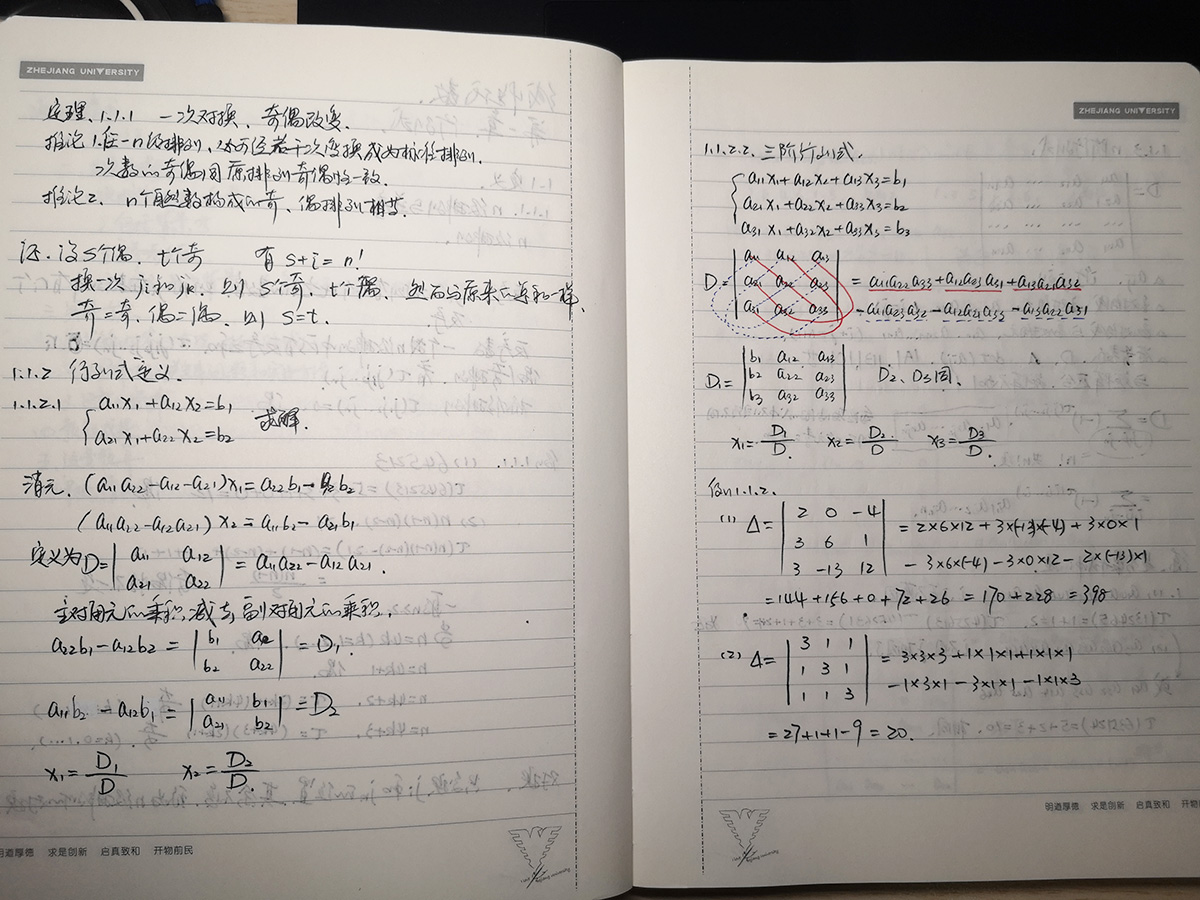 ZHEJIANG UNIVERSITY
定理.1.1.1 一次对换、奇偶改变.
推论1.任一n级排列,均可经若干次变换成为标准排列.
次数的奇偶同原排列奇偶性一致.
推论2. n个自然数构成的奇、偶排列相等.
证.设s个偶,t个奇 有 s+i=n!
换一次 ji和jk 则 s个奇,t个偶. 然而与原来一连和一样.
奇=奇、偶=偶、则 s=t.
1.1.2 行列式定义.
1.1.2.1 { a11x1+a12x2=b1
a21x1+a22x2=b2 求解.
消元. (a11a22-a12-a21)x1=a22b1- b2
(a11a22-a12a21)x2=a11b2-a21b1
定义为D=| a11 a12 |
| a21 a22 | = a11a22-a12a21.
主对角元的乘积,减去副对角元的乘积.
a22b1-a12b2 = | b1 a12 |
| b2 a22 | = D1.
a11b2-a12b1 = | a11 b1 |
| a21 b2 | = D2
x1=D1/D x2=D2/D.
明道厚德 求是创新 启真致和 开物前民
ZHEJIANG UNIVERSITY
1.1.2.2. 三阶行列式.
{ a11x1+a12x2+a13x3=b1
a21x1+a22x2+a33x3=b2
a31x1+a32x2+a33x3=b3
D=| a11 a12 a13 |
| a21 a22 a23 | = a11a22a33+a12a23a31+a13a21a32
| a31 a32 a33 | -a11a23a32-a12a21a33-a13a22a31
D1=| b1 a12 a13 |
| b2 a22 a23 | D2、D3同.
| b3 a32 a33 |
x1=D1/D. x2=D2/D x3=D3/D.
例1.1.2.
(1) Δ=| 2 0 -4 | = 2×6×12+3×(-13)×(-4)+3×0×1
| 3 6 1 |
| 3 -13 12 | -3×6×(-4)-3×0×12-2×(-13)×1
=144+156+0+72+26=170+228=398
(2) Δ=| 3 1 1 | = 3×3×3+1×1×1+1×1×1
| 1 3 1 |
| 1 1 3 | -1×3×1-3×1×1-1×1×3
=27+1+1-9=20.
明道厚德 求是创新 启真致和 开物